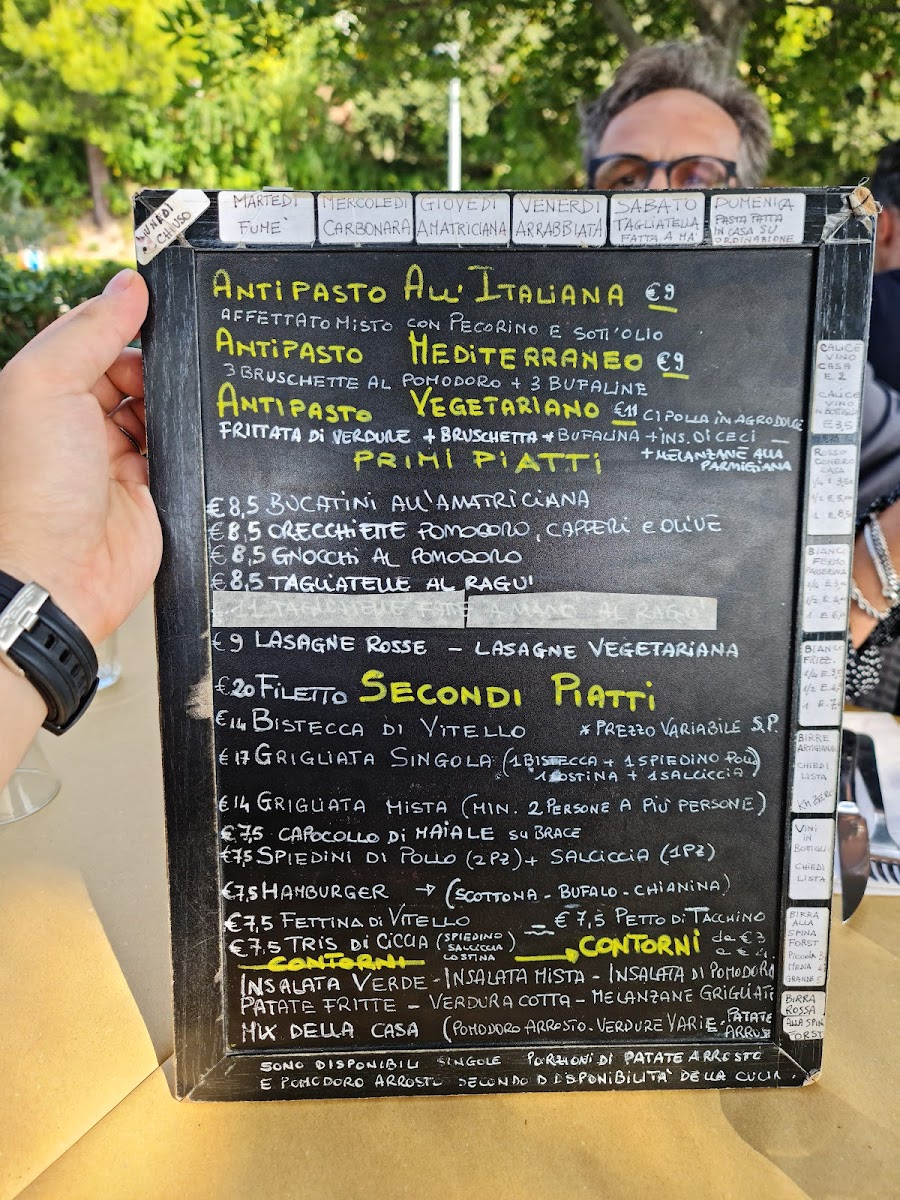 LUNEDI
CHIUSO
MARTEDÌ
FUME'
MERCOLEDI
CARBONARA
GIOVEDI
AMATRICIANA
VENERDI
ARRABBIATA
SABATO
TAGLIATELLA
FATTA A MA'
DOMENICA
PASTA FATTA
IN CASA SU
ORDINAZIONE
ANTIPASTO ALL'ITALIANA €9
AFFETTATO MISTO CON PECORINO E SOTT'OLIO
ANTIPASTO MEDITERRANEO €9
3 BRUSCHETTE AL POMODORO + 3 BUFALINE
ANTIPASTO VEGETARIANO €11 CIPOLLA IN AGRODOLCE
FRITTATA DI VERDURE + BRUSCHETTA + BUFALINA + INS. DI CECI
+ MELANZANE ALLA
PARMIGIANA
PRIMI PIATTI
€8,5 BUCATINI ALL'AMATRICIANA
€8,5 ORECCHIETTE POMODORO, CAPPERI e OLIVE
€8,5 GNOCCHI AL POMODORO
€8,5 TAGLIATELLE AL RAGU'
TAGLIATELLE FATTE A MANO AL RAGU'
€9 LASAGNE ROSSE - LASAGNE VEGETARIANA
€20 FILETTO SECONDI PIATTI
€14 BISTECCA DI VITELLO * PREZZO VARIABILE S.P.
€17 GRIGLIATA SINGOLA (1 BISTECCA + 1 SPIEDINO POLLO
1 COSTINA + 1 SALCICCIA)
€14 GRIGLIATA MISTA (MIN. 2 PERSONE A PIÙ PERSONE)
€7,5 CAPOCOLLO DI MAIALE SU BRACE
€7,5 SPIEDINI DI POLLO (2PZ) + SALCICCIA (1PZ)
€7,5 HAMBURGER → (SCOTTONA - BUFALO - CHIANINA)
€7,5 FETTINA DI VITELLO - € 7,5 PETTO DI TACCHINO
€7,5 TRIS DI CICCIA (SPIEDINO
SALCICCIA
COSTINA)
CONTORNI
CONTORNI da €3
INSALATA VERDE - INSALATA MISTA - INSALATA DI POMODORI
PATATE FRITTE - VERDURA COTTA - MELANZANE GRIGLIATE
MIX DELLA CASA (POMODORO ARROSTO - VERDURE VARIE - PATATE
ARROSTO
SONO DISPONIBILI SINGOLE PORZIONI DI PATATE ARROSTO
E POMODORO ARROSTO SECONDO DISPONIBILITA' DELLA CUCINA
CALICE
VINO
CASA
E 2
CALICE
VINO
IN BOTTIGLIA
E 3,5
ROSSO
CONERO
CASA
1/4 E 3,50
1/2 E 5,00
1 E 8,50
BIANCO
FERMO
PASSERINA
BIANCO
FRIZZ.
BIRRE
ARTIGIANALI
CHIEDI
LISTA
KM ZERO
VINI
IN
BOTTIGLIA
CHIEDI
LISTA
BIRRA
ALLA
SPINA
FORST
PICCOLA 3
MEDIA
GRANDE
BIRRA
ROSSA
ALLA SPINA
FORST